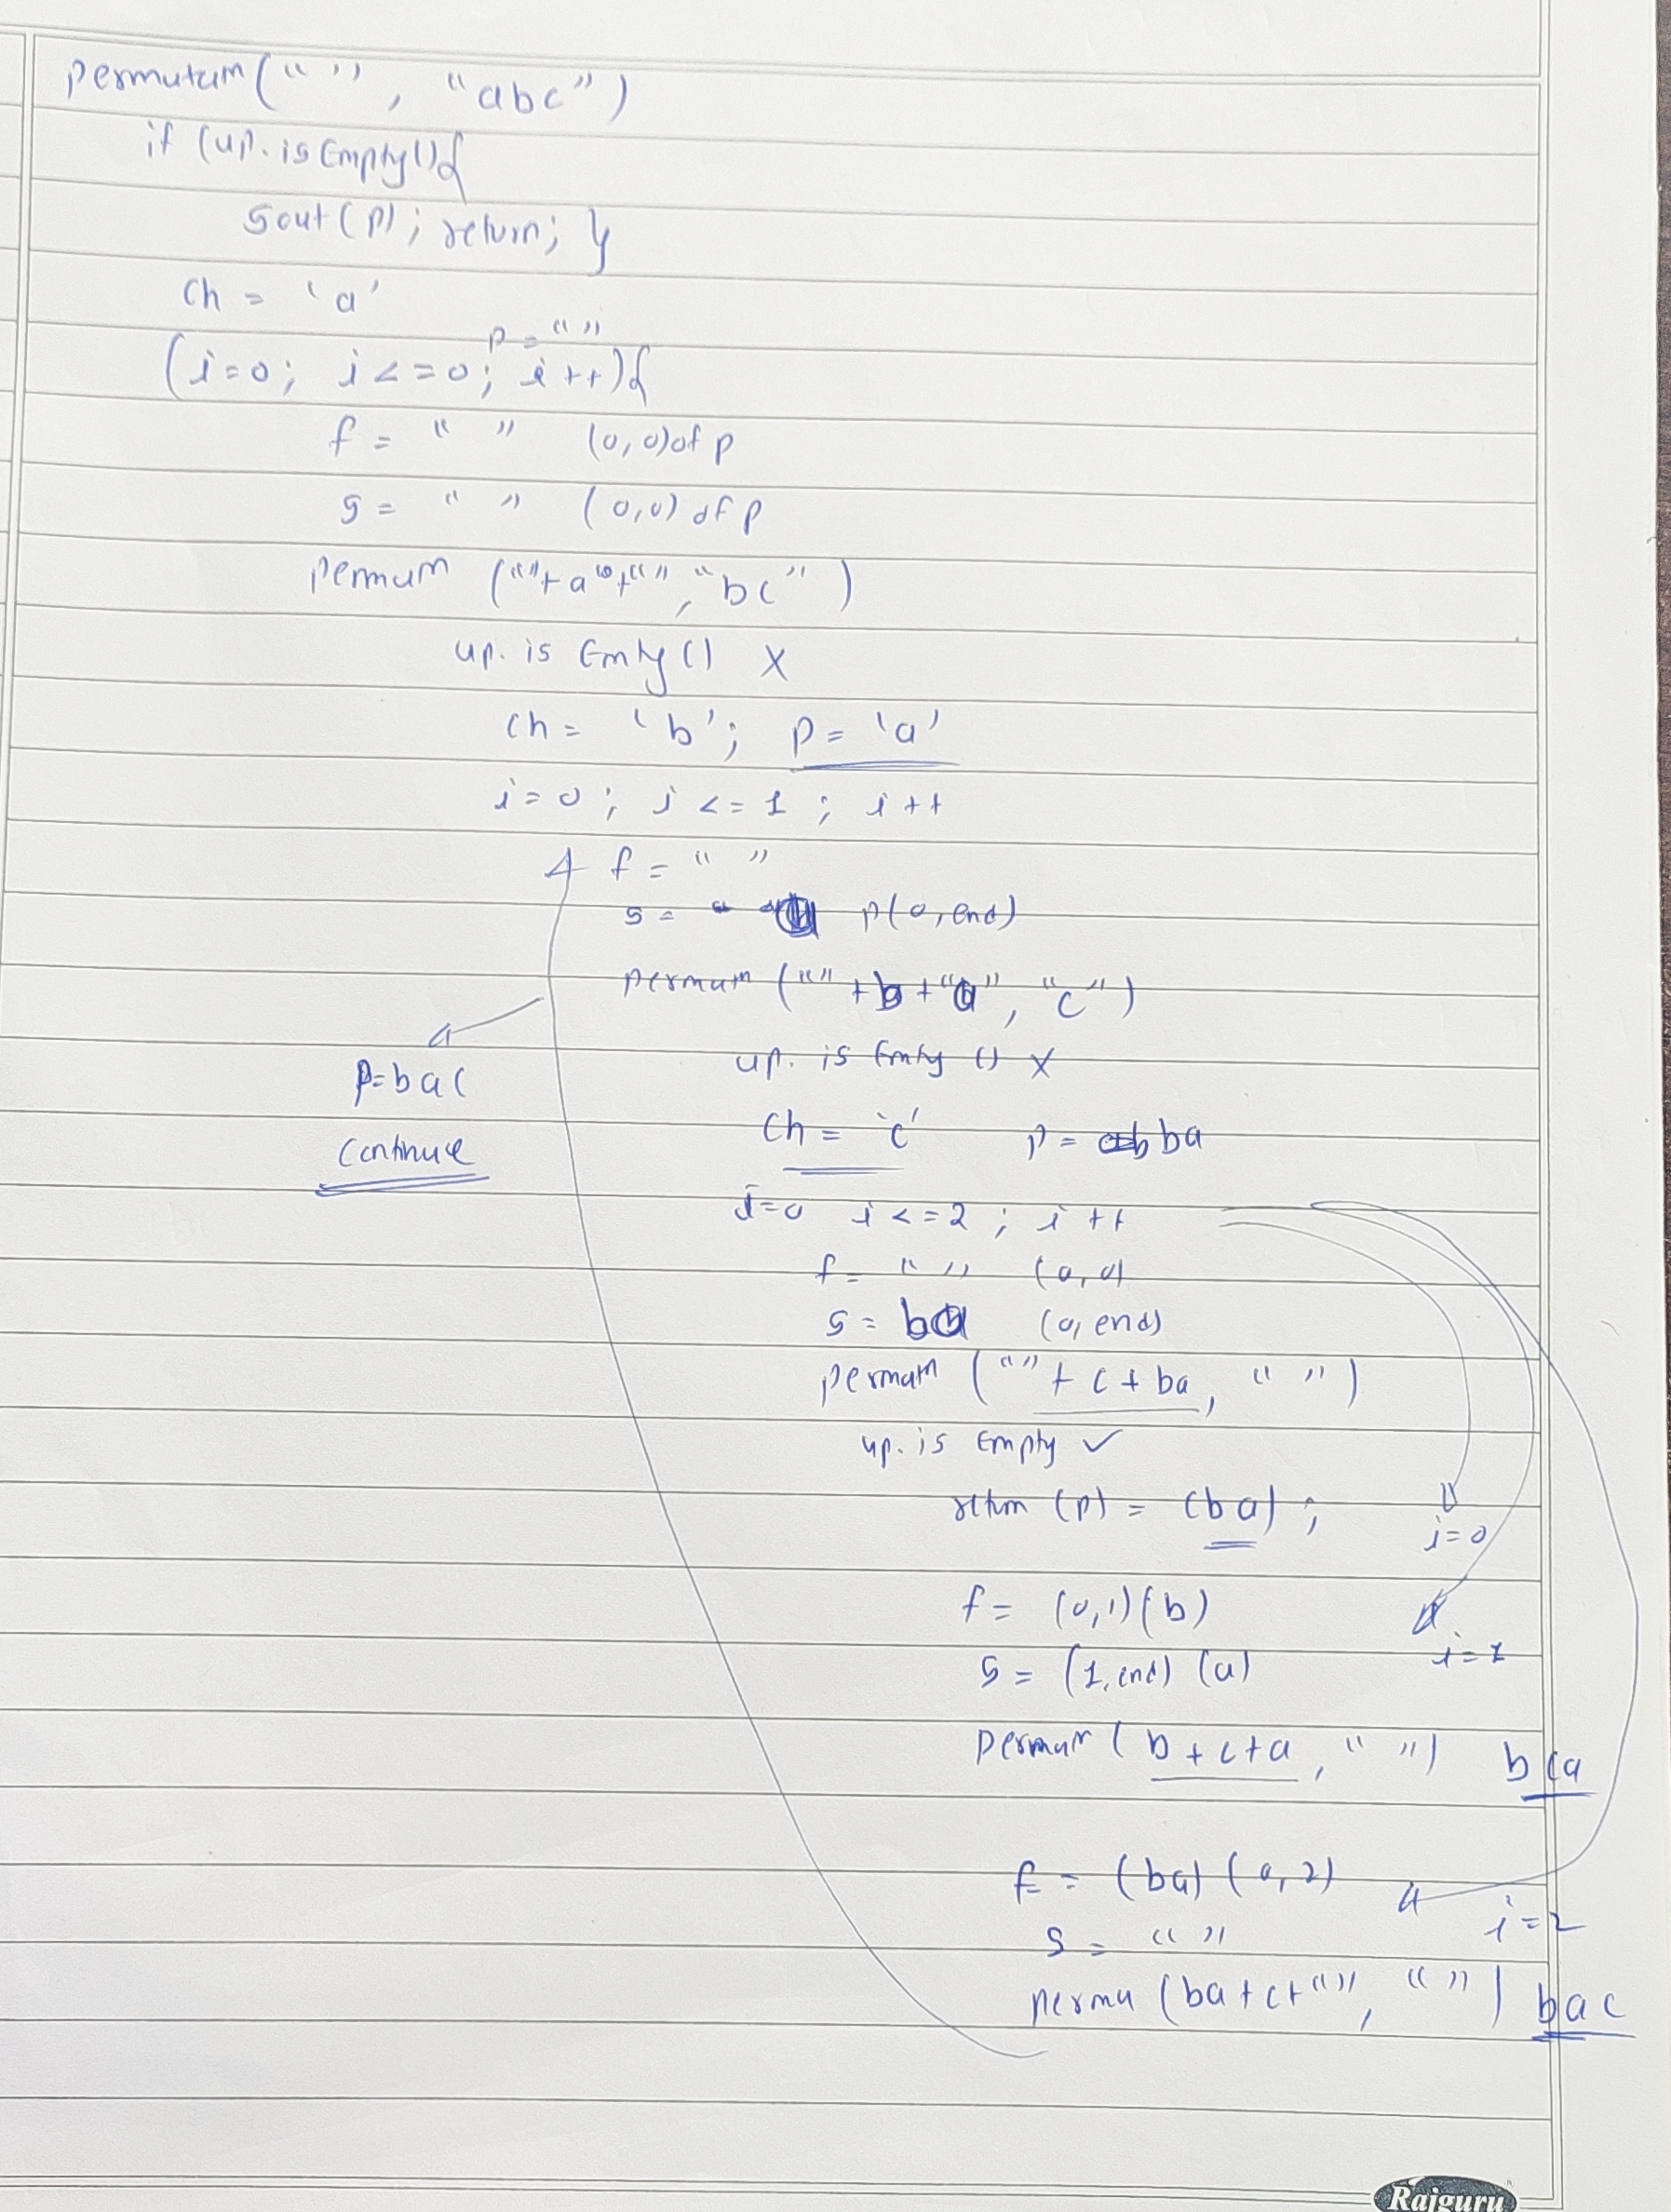 permutam (" ", "abc")
if (up. is Empty()){
sout (p); return; }
ch = 'a'
p = " "
(i=0; i<=0; i++){
f = " " (0,0) of p
s = " " (0,0) of p
permum (""+a+"", "bc")
up. is Emty() X
ch = 'b'; p = 'a'
i=0; i<=1; i++
f = " "
s = p(0, end)
permum (""+b+"a", "c")
up. is Emty () X
p=bac
ch = 'c' p = ba
continue
i=0 i<=2; i++
f = " " (0,0)
s = ba (0, end)
permum ("" + c + ba, " ")
up. is Empty ✓
return (p) = cba);
i=0
f = (0,1)(b)
s = (1, end) (a)
i=1
permum (b+c+a, " ") bca
f = (ba) (0,2)
i=2
s = " "
perma (ba+c+"", " ") bac
Rajguru